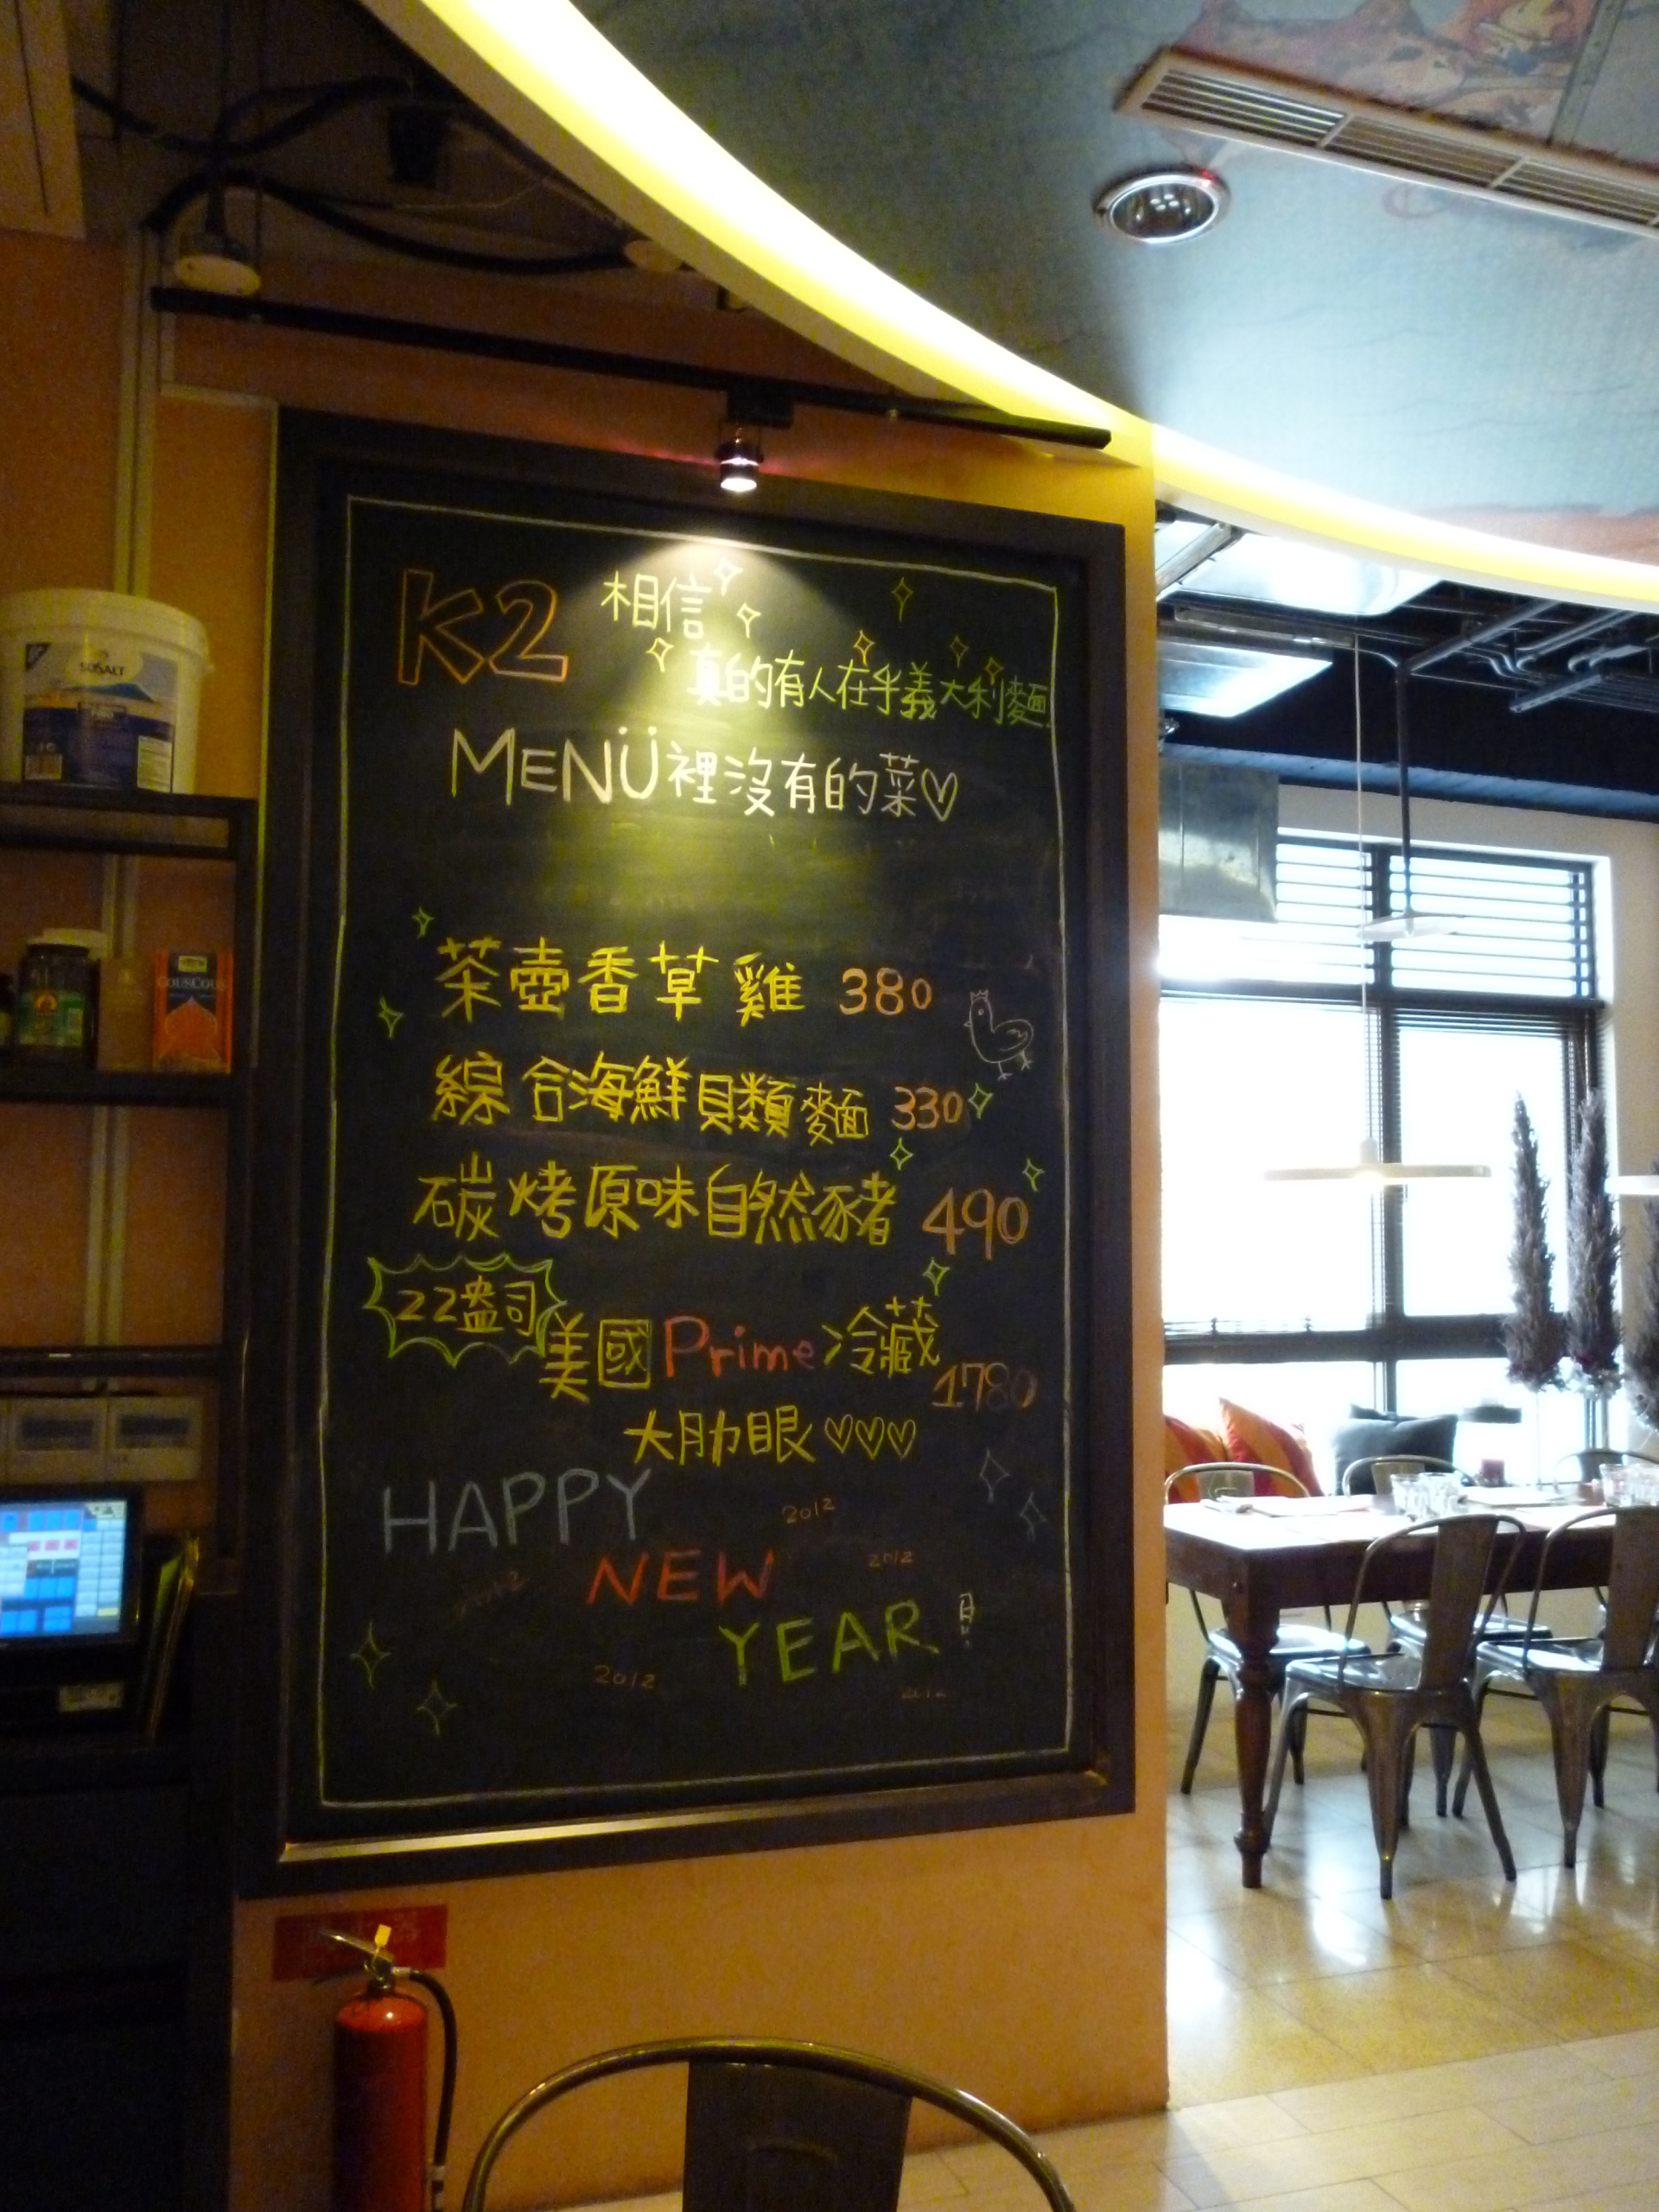 K2 相信
真的有人在乎義大利麵
MENÜ裡沒有的菜♡
茶壺香草雞 380
綜合海鮮貝類麵 330
碳烤原味自然豬 490
22盎司
美國Prime冷藏
1780
大肋眼♡♡♡
HAPPY
2012
NEW
2012
2012
YEAR!
2012
2012
SOSALT
COUSCOUS